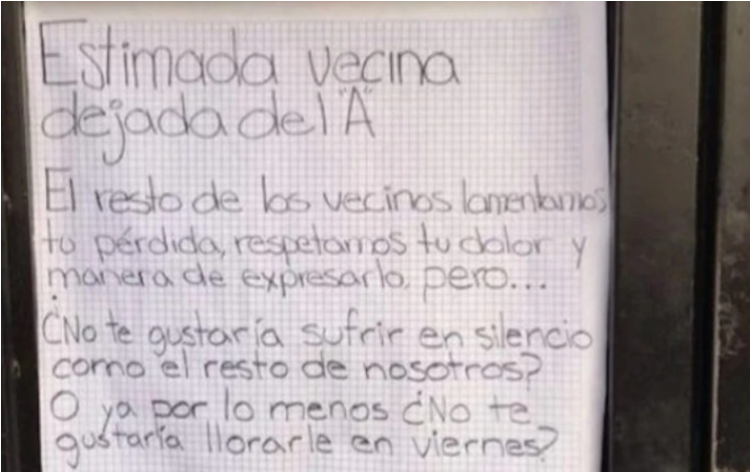 Estimada vecina
dejada del "A"
El resto de los vecinos lamentamos
tu pérdida, respetamos tu dolor y
manera de expresarlo, pero...
¿No te gustaría sufrir en silencio
como el resto de nosotros?
O ya por lo menos ¿No te
gustaría llorarle en viernes?